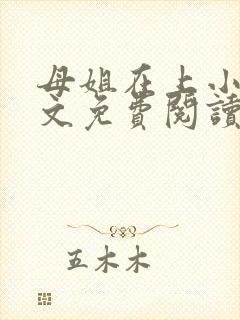 母姐在上小
文免費閱讀
五木木